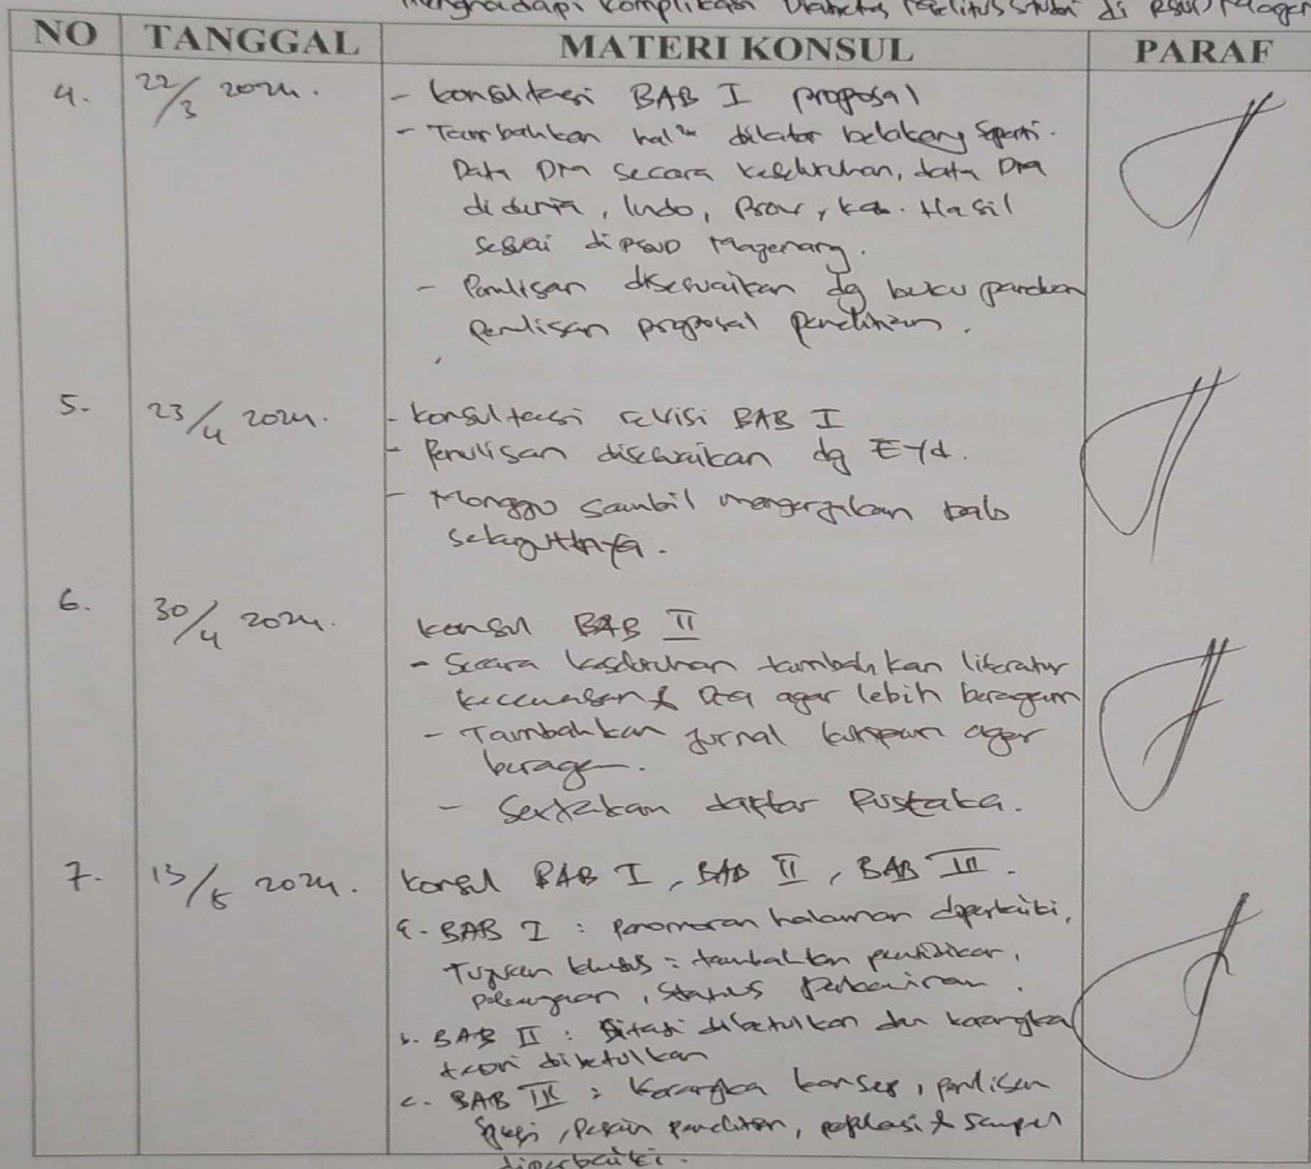 menghadapi Komplikasi Diabetes Melitus Studi di RSUD Majenang
NO TANGGAL MATERI KONSUL PARAF
4. 22/3 2024. - konsultasi BAB I proposal
- Tambahkan hal² dilatar belakang seperti.
Data DM secara keseluruhan, data DM
di dunia, Indo, Prov, kab. Hasil
sesuai di RSUD Majenang.
- Penulisan disesuaikan dg buku panduan
penulisan proposal penelitian.
5. 23/4 2024. - konsultasi revisi BAB I
- Penulisan disesuaikan dg EYd.
- Monggo sambil mengerjakan bab
selanjutnya.
6. 30/4 2024. konsul BAB II
- Secara keseluruhan tambahkan literatur
kecemasan & DM agar lebih beragam
- Tambahkan jurnal agar
beragam.
- Sertakan daftar Pustaka.
7. 13/5 2024. konsul BAB I, BAB II, BAB III.
a. BAB I : penomoran halaman diperbaiki,
Tujuan khusus : tambahkan pendidikan,
pekerjaan, status perkawinan.
b. BAB II : Sitasi dibetulkan dan kerangka
teori dibetulkan
c. BAB III : Kerangka konsep, penulisan
, Desain penelitian, populasi & sampel
diperbaiki.